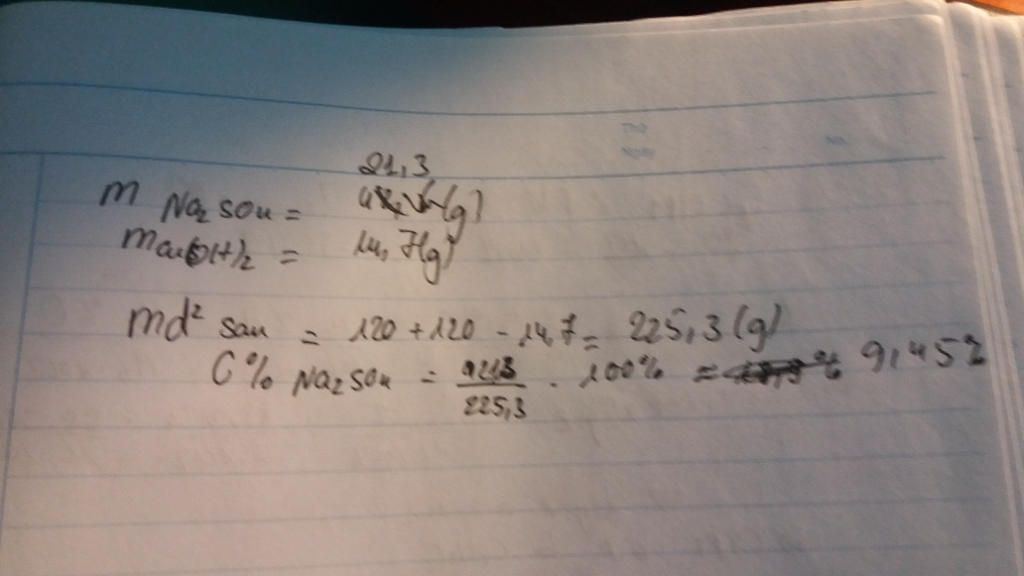 21,3
m Na2SO4 = (g)
mCu(OH)2 = 14,7(g)
md² sau = 120 + 120 - 14,7 = 225,3 (g)
C% Na2SO4 = 21,3/225,3 . 100% = % 9,45%